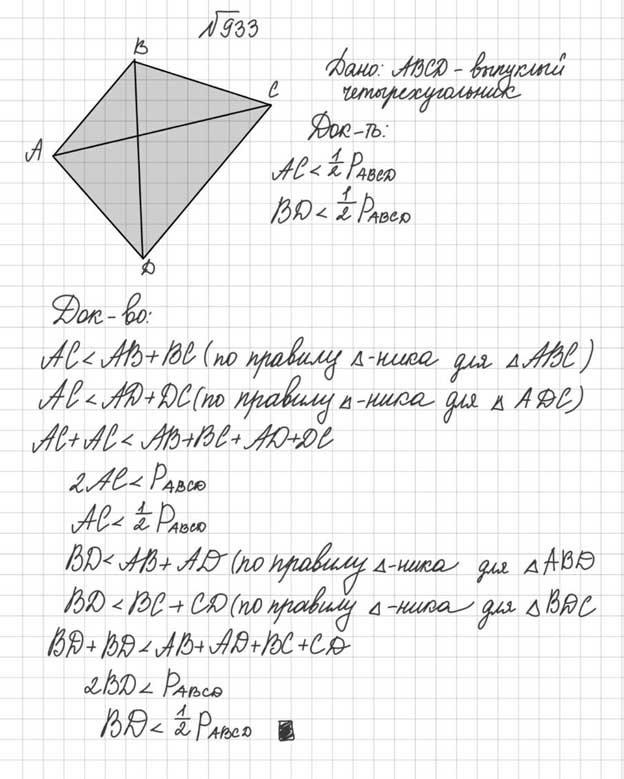 √933
B
C
A
D
Дано: ABCD - выпуклый
четырехугольник
Док-ть:
AC < 1/2 P_ABCD
BD < 1/2 P_ABCD
Док-во:
AC < AB + BC (по правилу Δ-ника для Δ ABC)
AC < AD + DC (по правилу Δ-ника для Δ ADC)
AC + AC < AB + BC + AD + DC
2AC < P_ABCD
AC < 1/2 P_ABCD
BD < AB + AD (по правилу Δ-ника для Δ ABD
BD < BC + CD (по правилу Δ-ника для Δ BDC
BD + BD < AB + AD + BC + CD
2BD < P_ABCD
BD < 1/2 P_ABCD